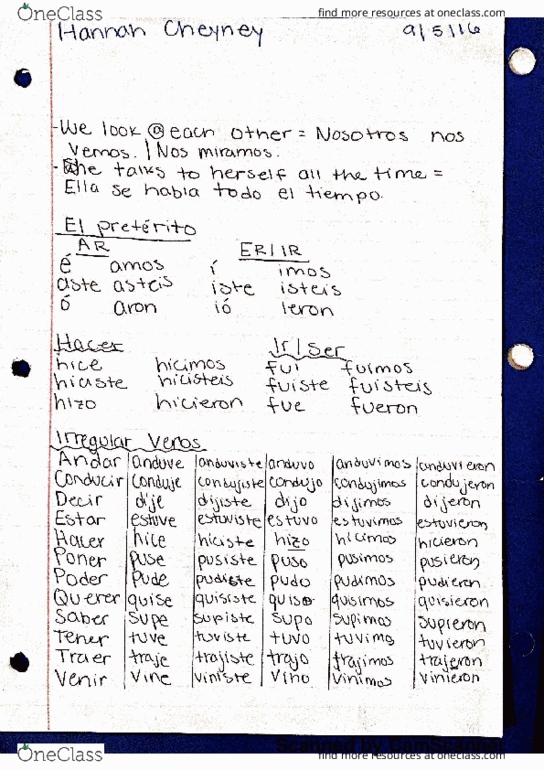 OneClass
find more resources at oneclass.com
Hannah Cheyney 9/5/16
-We look @ each other = Nosotros nos
vemos. | Nos miramos.
- She talks to herself all the time =
Ella se habla todo el tiempo.
El pretérito
AR ER/IR
é amos í imos
aste asteis iste isteis
ó aron ió ieron
Hacer Ir/Ser
hice hicimos fui fuimos
hiciste hicisteis fuiste fuisteis
hizo hicieron fue fueron
Irregular Verbs
Andar anduve anduviste anduvo anduvimos anduvieron
Conducir conduje condujiste condujo condujimos condujeron
Decir dije dijiste dijo dijimos dijeron
Estar estuve estuviste estuvo estuvimos estuvieron
Hacer hice hiciste hizo hicimos hicieron
Poner puse pusiste puso pusimos pusieron
Poder pude pudiste pudo pudimos pudieron
Querer quise quisiste quiso quisimos quisieron
Saber supe supiste supo supimos supieron
Tener tuve tuviste tuvo tuvimos tuvieron
Traer traje trajiste trajo trajimos trajeron
Venir vine viniste vino vinimos vinieron
Scanned by CamScanner
OneClass
find more resources at oneclass.com